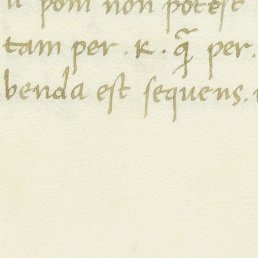 poni non potest
tam per . K . q̃ per.
benda est sequens.